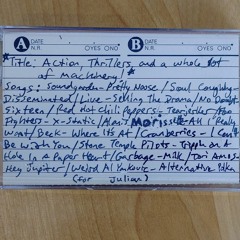 A DATE B DATE
N.R. OYES ONO N.R. OYES ONO
*Title: Action, Thrillers, and a whole lot
of machinery! *
Songs: Soundgarden - Pretty Noose / Soul Coughing -
Disseminated / Live - Selling The Drama / No Doubt
Sixteen / Red Hot Chili Peppers - Tearjerker / Foo
Fighters - X-Static / Alanis Morissette - All I Really
Want / Beck - Where It's At / Cranberries - I Can't
Be With You / Stone Temple Pilots - Trippin on A
Hole In A Paper Heart / Garbage - Milk / Tori Amos -
Hey Jupiter / Weird Al Yankovic - Alternative Polka
(for Julian)